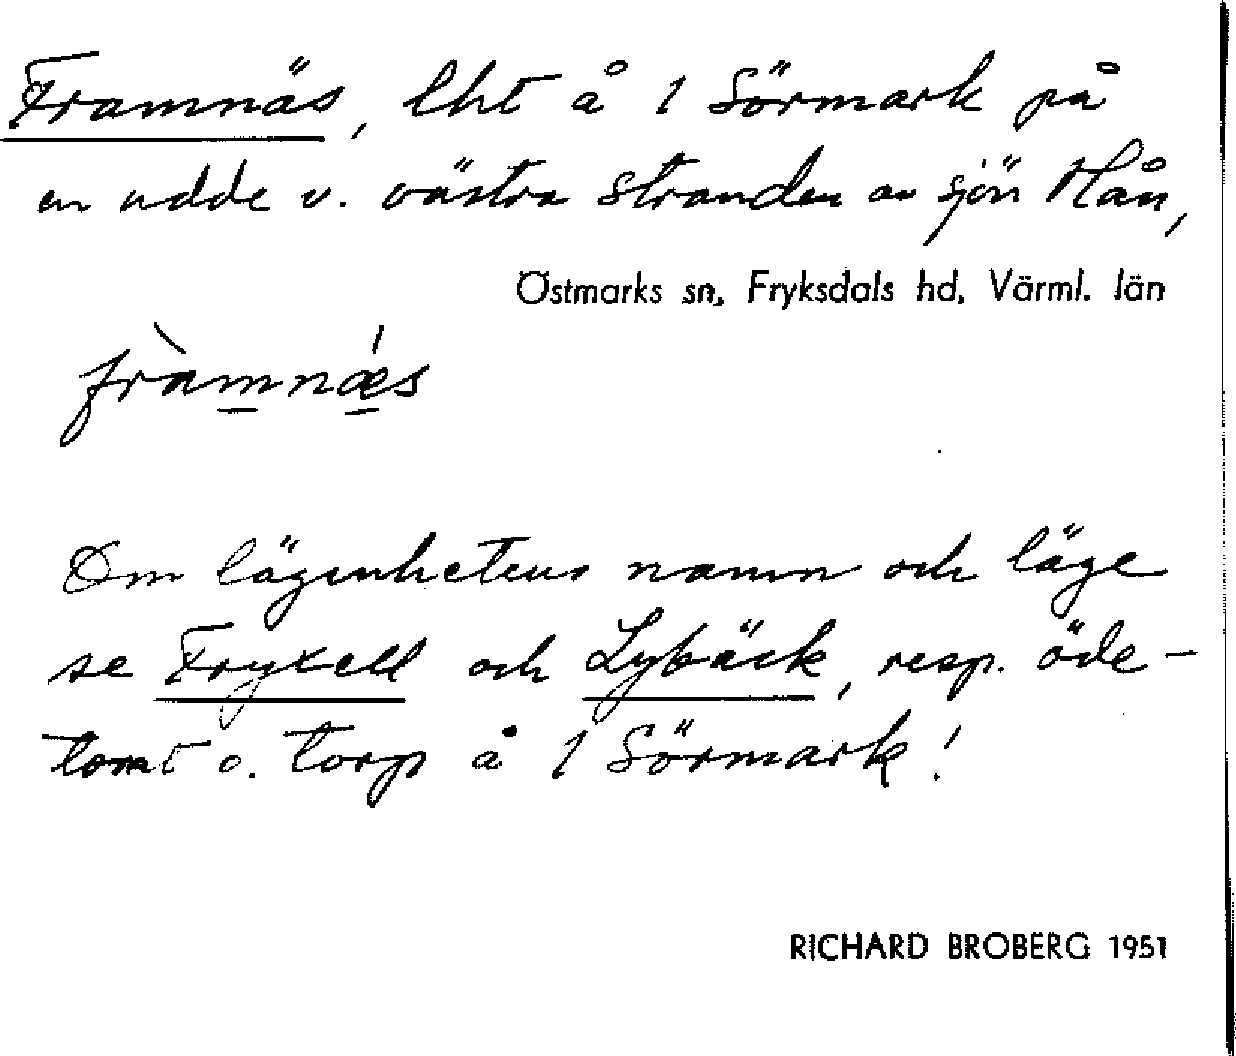 Framnäs, lht å 1 Sörmark på
en udde v. västra stranden av sjön Mån,
Östmarks sn, Fryksdals hd, Värml. län
fràmnǽs
Om lägenhetens namn och läge
se Fryxell och Lybäck, resp. öde-
tomt o. torp å 1 Sörmark!
RICHARD BROBERG 1951